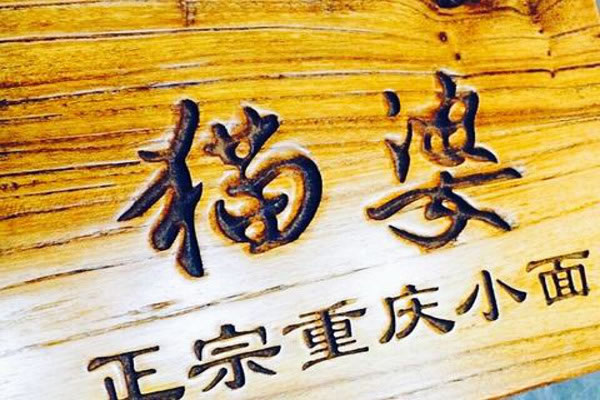 猫婆
正宗重庆小面